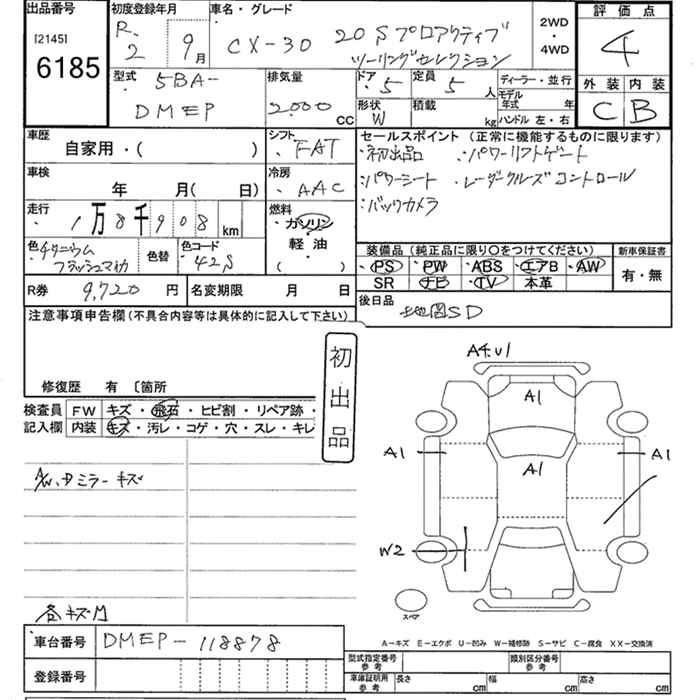 出品番号 初度登録年月 車名・グレード 2WD・4WD 評価点
[2145]
6185
R.2 9月 CX-30 20S プロアクティブ
ツーリングセレクション
4
型式 5BA-
DMEP
排気量 2000 CC
ドア 5 定員 5 人 ディーラー・並行
モデル年式 年
形状 W 積載 kg ハンドル 左・右
外装 内装
C B
車歴 自家用・( )
シフト FAT
セールスポイント (正常に機能するものに限ります)
・初出品 ・パワーリフトゲート
・パワーシート ・レーダークルーズコントロール
・バックカメラ
車検 年 月(日)
冷房 AAC
走行 1万8千908 km
燃料 ガソリン
・軽油・
( )
色 チタニウムフラッシュマイカ 色替 色コード 42S
装備品 (純正品に限り○をつけてください) 新車保証書
・PS ・PW ・ABS ・エアB ・AW
SR ナビ ・TV 本革
有・無
R券 9,720 円 名変期限 月 日
後日品 地図SD
注意事項申告欄(不具合内容等は具体的に記入して下さい)
初出品
修復歴 有 〔箇所
検査員記入欄 FW キズ・飛石・ヒビ割・リペア跡・
内装 キズ・汚レ・コゲ・穴・スレ・キレ
A/W、Dミラーキズ
各キズ有
A4.U1
A1
A1
A1
A1
W2
スペア
A−キズ E−エクボ U−凹み W−補修跡 S−サビ C−腐食 XX−交換済
車台番号 DMEP-118878
登録番号
型式指定番号 参考 類別区分番号 参考
車庫証明用 参考 長さ cm 幅 cm 高さ cm